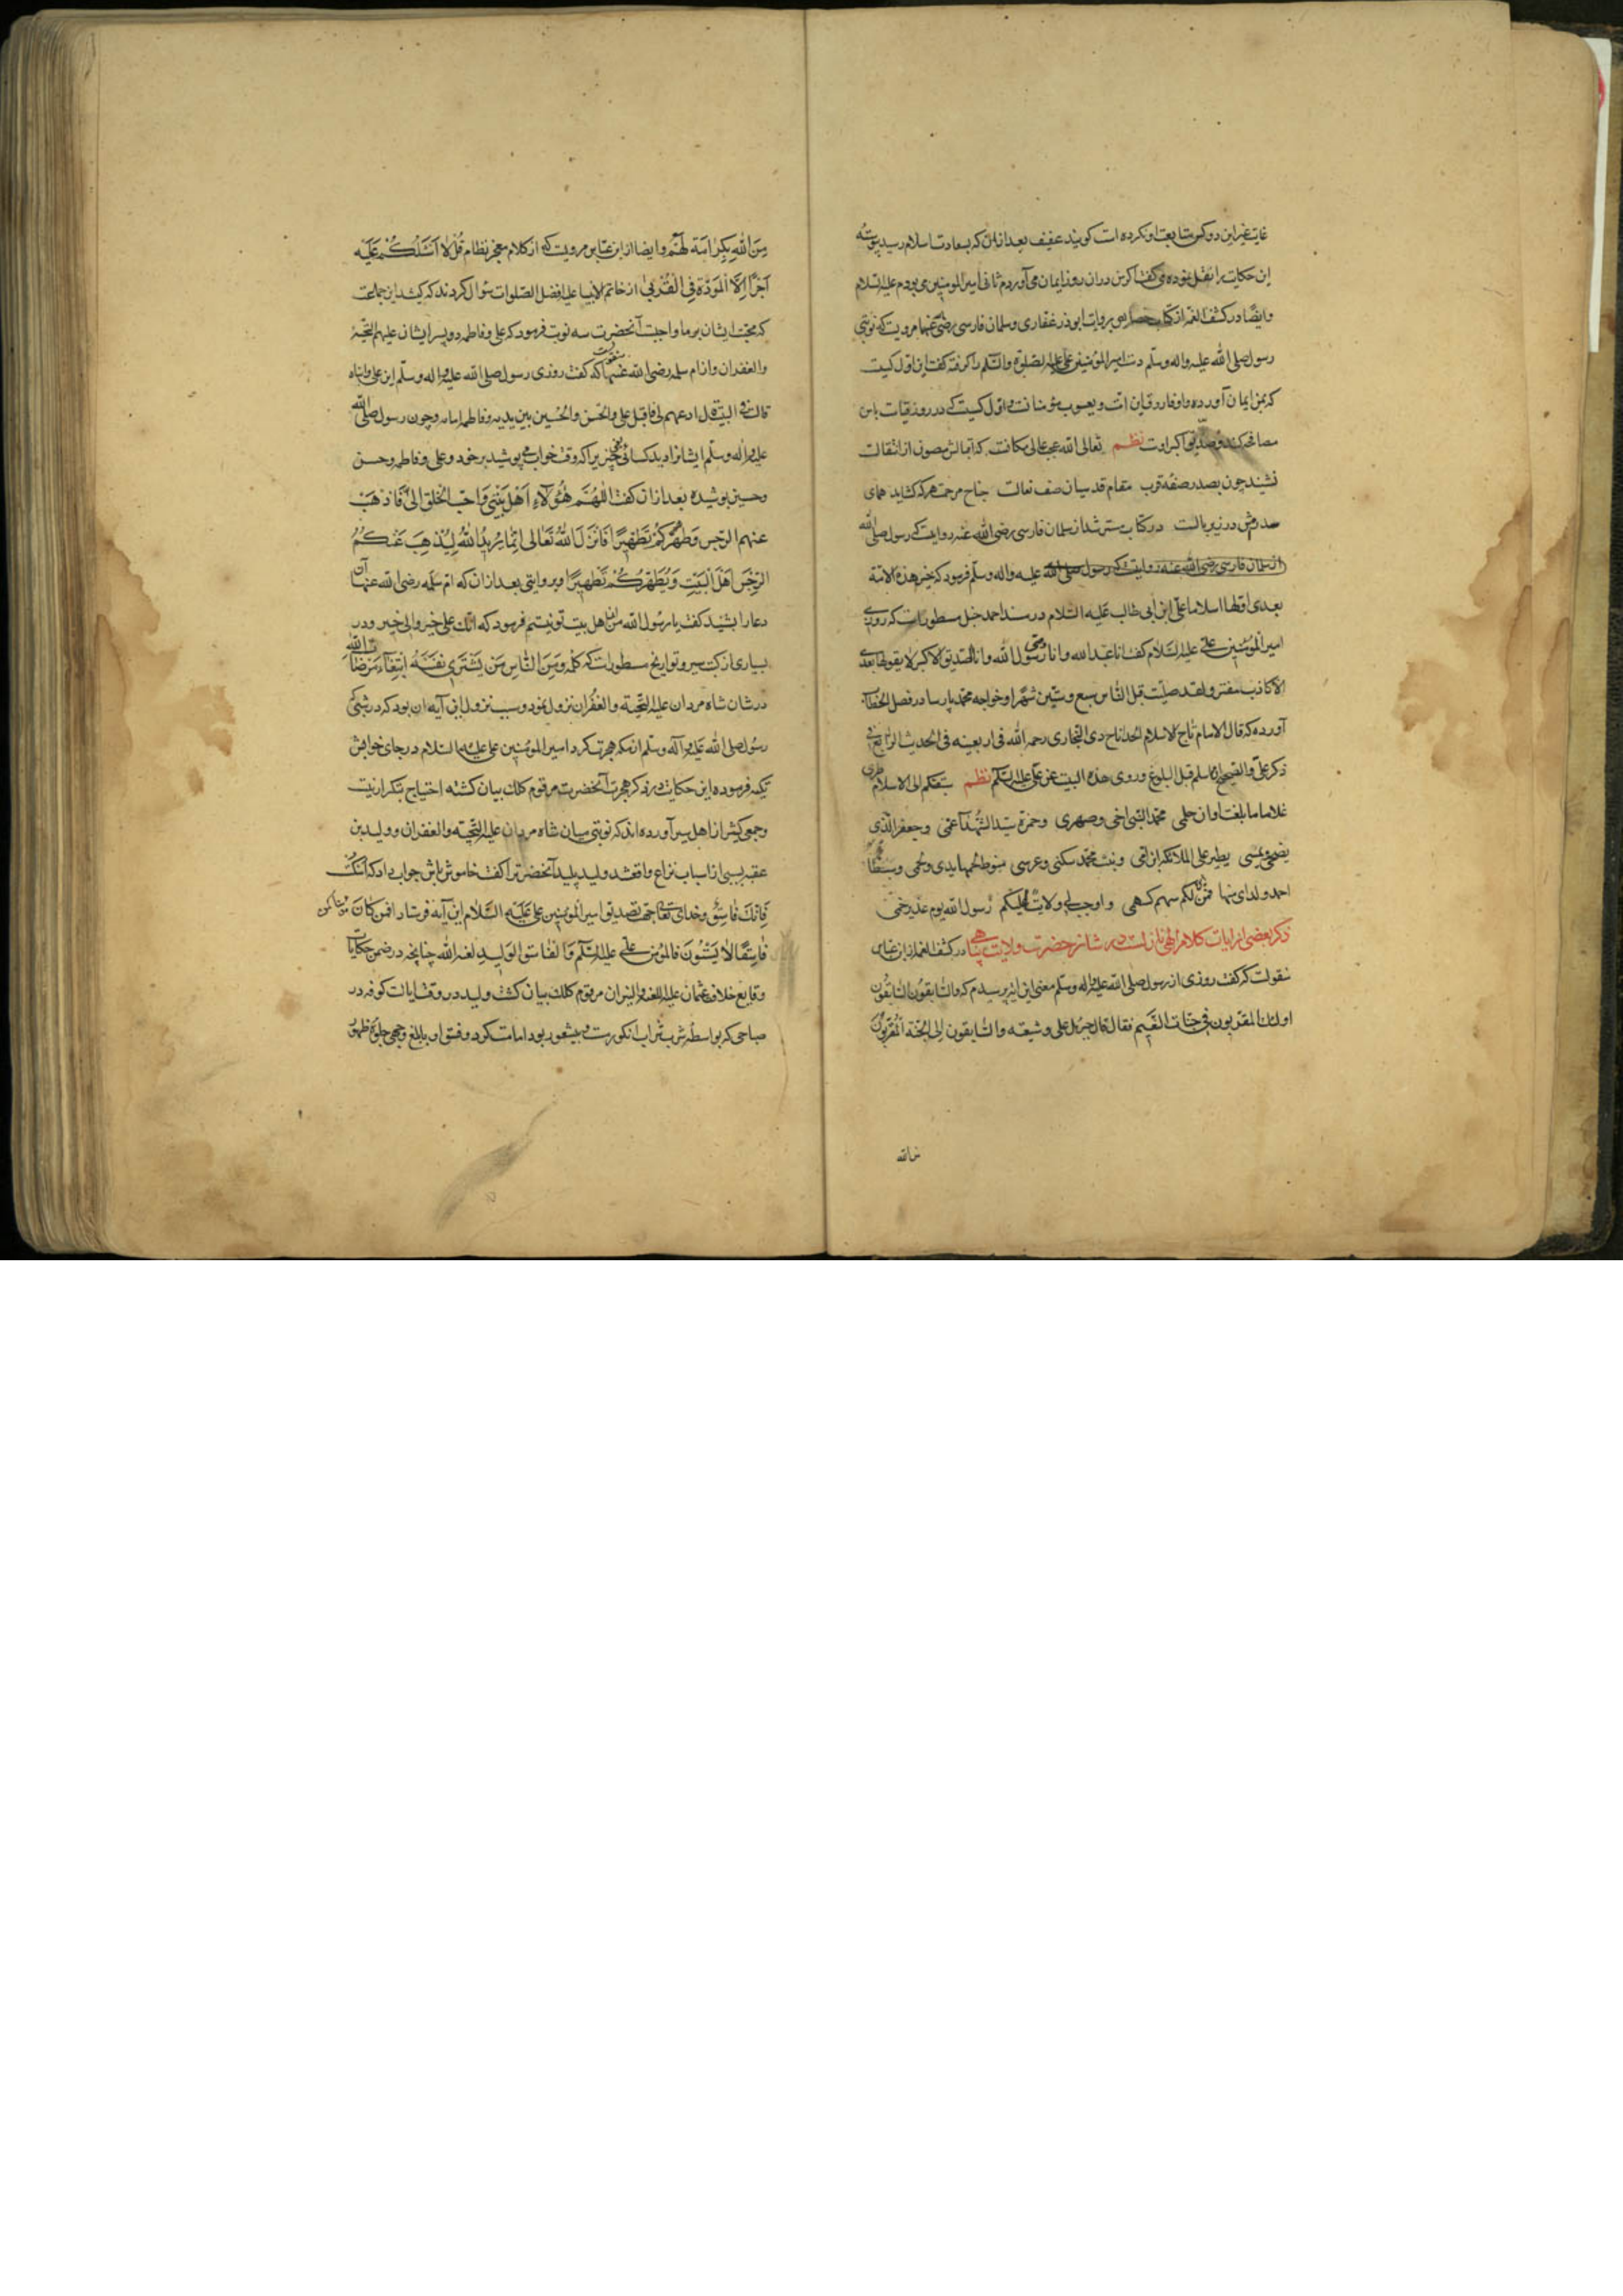 غایت غیر این دو کس متابعت او نکرده است گویند عفیف بعد از آن که بسعادت اسلام رسید پیوسته
این حکایت را نقل نموده می گفت اگر من در آن روز ایمان می آوردم ثانی امیر المومنین می بودم علیه السلام
وایضًا در کشف الغمه از کتاب خصایص بروایت ابوذر غفاری وسلمان فارسی رضی عنهما مرویست که نوبتی
رسول صلی الله علیه واله وسلم دست امیر المؤمنین علی علیه الصلوة والسلم را گرفته گفت این اول کسیست
که بمن ایمان آورده واو فاروق این امت ویعسوب مؤمنانست واول کسیست که در روز قیامت با من
مصافحه کند وصدیق اکبر اوست نظم تعالی الله عجب عالی مکانست که اقبالش مصون از انتقالست
نشیند چون بصدر صفه قرب مقام قدسیان صف نعالست جناح مرحمت هر که گشاید همای
سدره‌ش در زیر بالست در کتاب مسترشد از سلمان فارسی رضی الله عنه روایت که رسول صلی الله
از سلمان فارسی رضی الله عنه روایت که رسول صلی الله علیه واله وسلم فرمود که خیر هذه الامة
بعدی اولها اسلاما علی ابن ابی طالب علیه السلام در مسند احمد حنبل مسطور است که روزی
امیر المؤمنین علی علیه السلام گفت انا عبد الله وانا وصی رسول الله وانا الصدیق الاکبر لا یقولها بعدی
الا کاذب مفتر ولقد صلیت قبل الناس سبع وستین شهرا وخواجه محمد پارسا در فصل الخطاب
آورده که قال الامام تاج الاسلام الخدابادی البخاری رحمه الله فی اربعینه فی الحدیث الرابع فی
ذکر علی والصحیح انه اسلم قبل البلوغ وروی هذه البیت عن علی علیه السلم نظم سبقتکم الی الاسلام طری
غلاما ما بلغت اوان حلمی محمد النبی اخی وصهری وحمزة سید الشهدآ عمی وجعفر الذی
یضحی ویمسی یطیر علی الملائکه ابن امی وبنت محمد سکنی وعرسی منوط لحمها بدمی ولحمی وسبطا
احمد ولدای منها فمن لکم سهم کسهمی واوجب لی ولایته علیکم رسول الله یوم غدیر خم
ذکر بعضی از ایات کلام الهی که نازلست در شان حضرت ولایت پناهی در کشف الغمه از ابن عباس
منقولست که گفت روزی از رسول صلی الله علیه واله وسلم معنی این ایه پرسیدم که والسابقون السابقون
اولئک المقربون فی جنات النعیم فقال قال جبرئیل علی وشیعته والسابقون الی الجنة المقربون
من الله
مِنَ اللّٰهِ بِکَرَامَتِهِ لَهُمْ وایضا از ابن عباس مرویست که از کلام معجز نظام قُلْ لَا اَسْئَلُکُمْ عَلَیْهِ
اَجْرًا اِلَّا الْمَوَدَّةَ فِی الْقُرْبٰی از خاتم الانبیا علیه افضل الصلوات سؤال کردند که کیستند این جماعت
که محبت ایشان بر ما واجبست آنحضرت سه نوبت فرمود که علی وفاطمه ودو پسر ایشان علیهم التحیة
والغفران واز ام سلمه رضی الله عنها منقولست که گفت روزی رسول صلی الله علیه واله وسلم این علی وابناه
قالت فی البیت قال ادعیهم لی فاقبل علی والحسن والحسین بین یدیه وفاطمه امامه وچون رسول صلی الله
علیه واله وسلم ایشانرا دید کسائی خیبریرا که وقت خواب می پوشید بر خود وعلی وفاطمه وحسن
وحسین پوشیده بعد از آن گفت اَللّٰهُمَّ هٰؤُلَآءِ اَهْلُ بَیْتِی وَاَحَبُّ الخلق الیَّ فَاَذْهِبْ
عنهم الرجس وَطَهِّرْهُمْ تَطْهِیرًا فَاَنْزَلَ اللّٰهُ تَعَالٰی اِنَّمَا یُرِیدُ اللّٰهُ لِیُذْهِبَ عَنْکُمُ
الرِّجْسَ اَهْلَ الْبَیْتِ وَیُطَهِّرَکُمْ تَطْهِیرًا وبروایتی بعد از آن که ام سلمه رضی الله عنها آن
دعا را بشنید گفت یا رسول الله من از اهل بیت تو نیستم فرمود که انک علی خیر والی خیر ودر
بسیاری از کتب سیر وتواریخ مسطور است که کلمه وَمِنَ النَّاسِ مَنْ یَشْتَرِی نَفْسَهُ ابْتِغَآءَ مَرْضَاتِ اللّٰهِ
در شان شاه مردان علیه التحیة والغفران نزول نمود وسبب نزول این آیه آن بود که در شبی که
رسول صلی الله علیه وآله وسلم از مکه هجرت کرد امیر المؤمنین علی علیه السلام در جای خوابش
تکیه فرموده این حکایت در ذکر هجرت آنحضرت مرقوم کلک بیان گشته احتیاج بتکرار نیست
وجمعی کثیر از اهل سیر آورده اند که نوبتی میان شاه مردان علیه التحیة والغفران وولید بن
عقبه بسببی از اسباب نزاع واقع شد ولید پلید آنحضرترا گفت خاموش باش جواب داد که اسکت
فَاِنَّکَ فَاسِقٌ وخدای تعالی جهت تصدیق امیر المؤمنین علی عَلَیْهِ السَّلَام این آیه فرستاد افمن کان مؤمنا کمن
فَاسِقًا لَا یَسْتَوُونَ فالمؤمن علی علیه السلم وَالفاسق الولید لعنه الله چنانچه در ضمن حکایات
وقایع خلافت عثمان علیه اللعنه والنیران مرقوم کلک بیان گشت ولید در وقت ایالت کوفه در
صباحی که بواسطه شرب شراب انگور مست وبیشعور بود امامت کرد وفسق او بابلغ وجهی جلوه ظهور